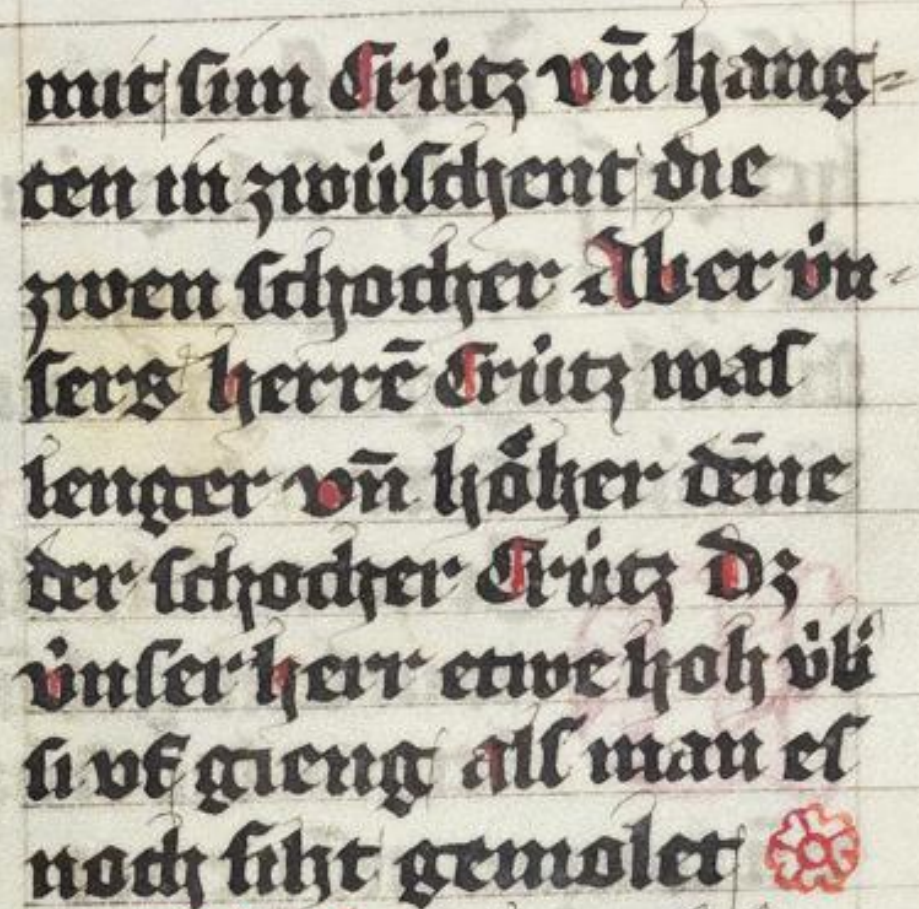 mit ſim Crütz vn̄ hang⸗
ten in zwüſchent die
zwen ſchocher Aber v̈n⸗
ſers herrē Crütz waſ
lenger vn̄ hoͤher dēne
der ſchocher Crütz Dz
v̈nſer herr etwe hoh v̈b͛
ſi vf gieng alſſ man eſ
noch ſiht gemolet